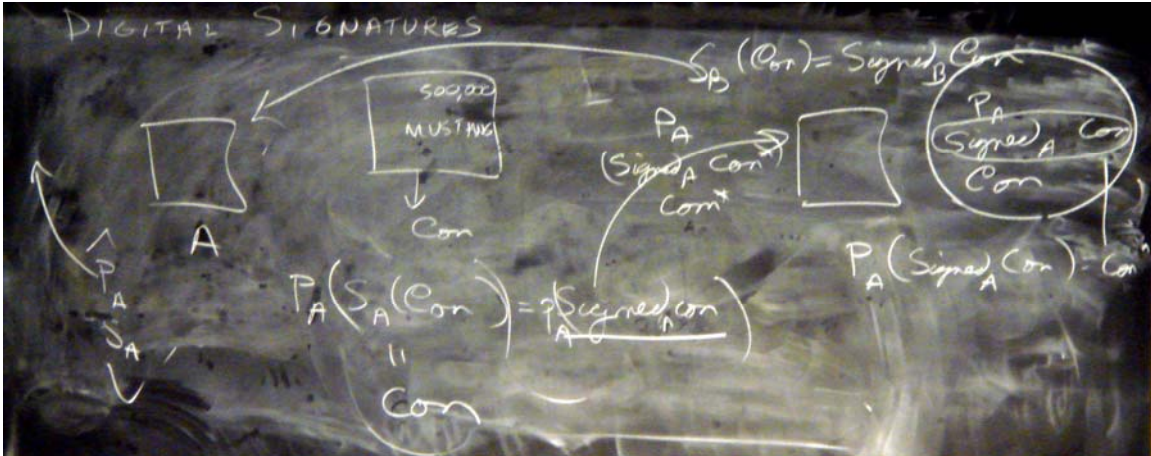 DIGITAL SIGNATURES
S_B (Con) = Signed_B Con
500,000
MUSTANG
Con
A
P_A
S_A
P_A
(Signed_A Con*)
Con*
P_A
Signed_A Con
Con
P_A (Signed_A Con) = Con
P_A (S_A (Con)) = P_A (Signed_A Con)
=
Con